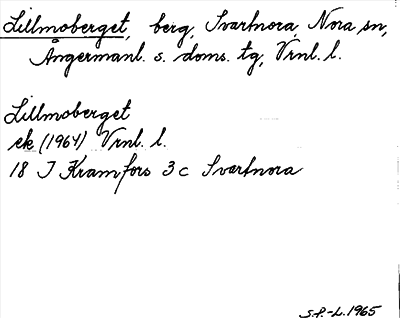 Lillmoberget, berg, Svartnora, Nora sn,
Ångermanl. s. doms. tg, Vrnl. l.
Lillmoberget
ek (1964) Vrnl. l.
18 I Kramfors 3 c Svartnora
S.P.-L. 1965